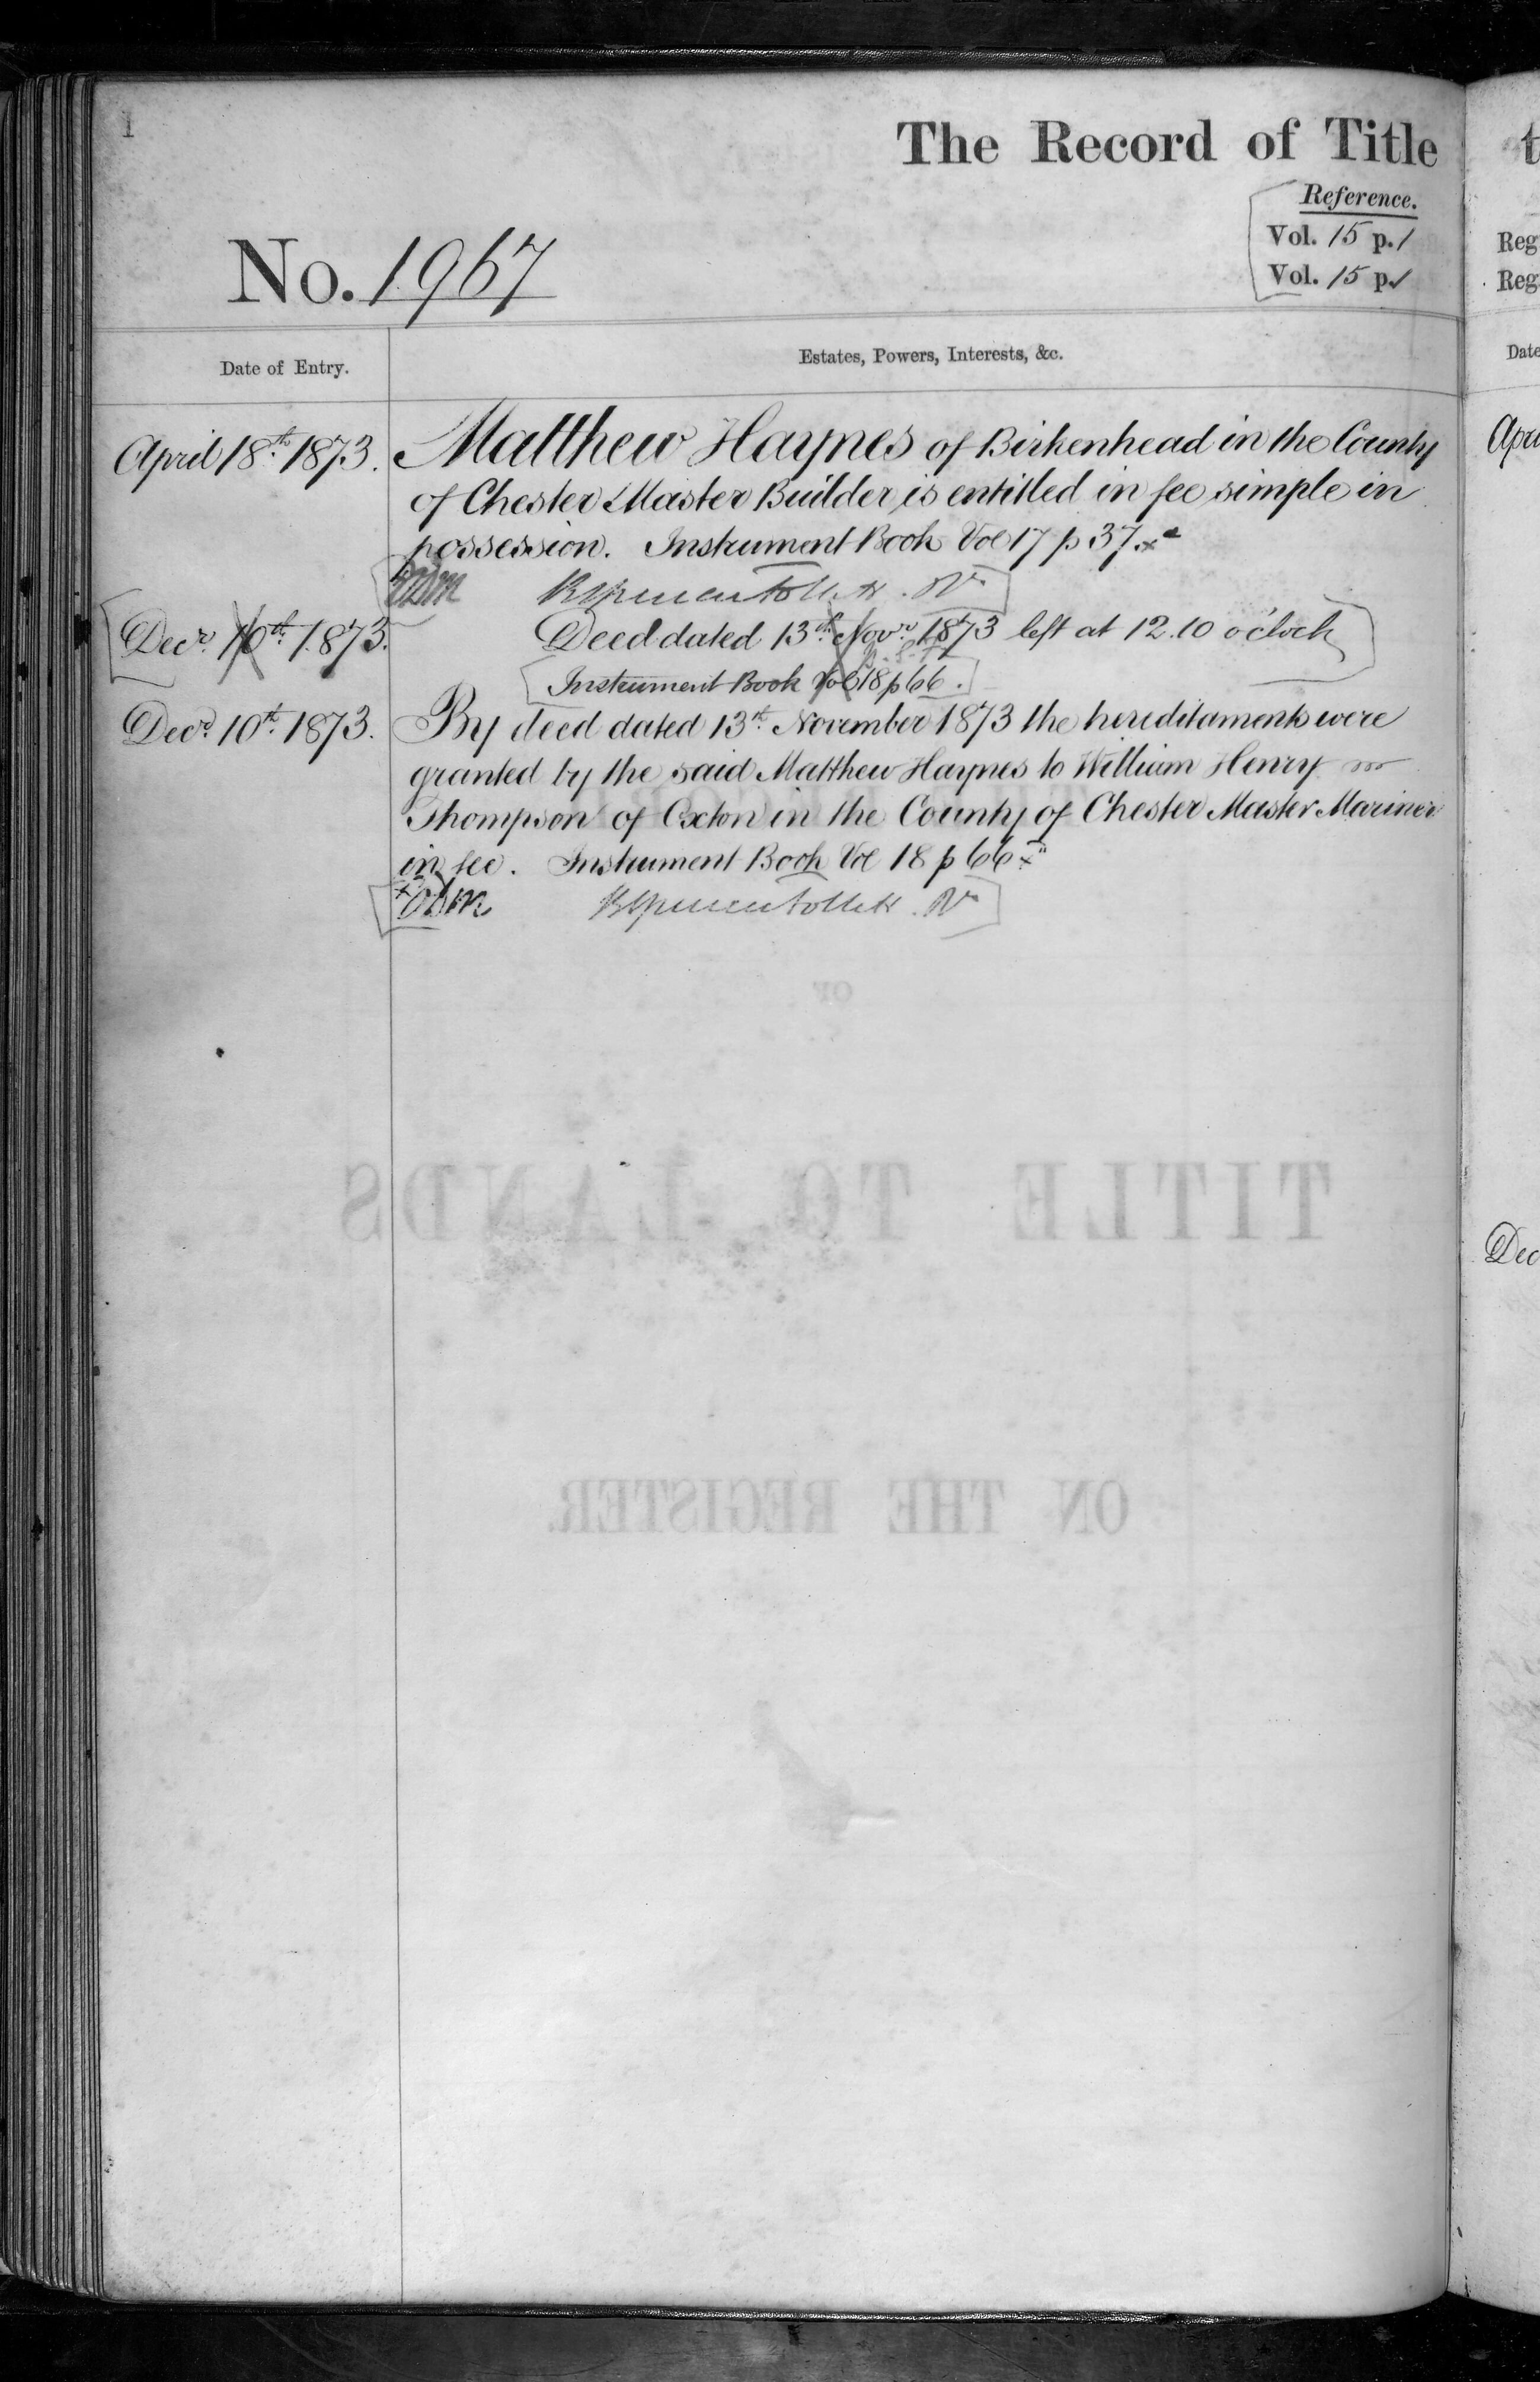 1
The Record of Title
Reference.
Vol. 15 p. 1
Vol. 15 p. 1
No. 1967
Date of Entry.
Estates, Powers, Interests, &c.
April 18th 1873. Matthew Haynes of Birkenhead in the County
of Chester Master Builder is entitled in fee simple in
possession. Instrument Book Vol 17 p 37.
Decr 10th 1873. Deed dated 13th Novr 1873 left at 12.10 o'clock
Instrument Book Vol 18 p 66.
Decr 10th 1873. By deed dated 13th November 1873 the hereditaments were
granted by the said Matthew Haynes to William Henry
Thompson of Oxton in the County of Chester Master Mariner
in fee. Instrument Book Vol 18 p 66
OF
TITLE TO LANDS
ON THE REGISTER.
t
Reg
Reg
Date
Apri
Dec